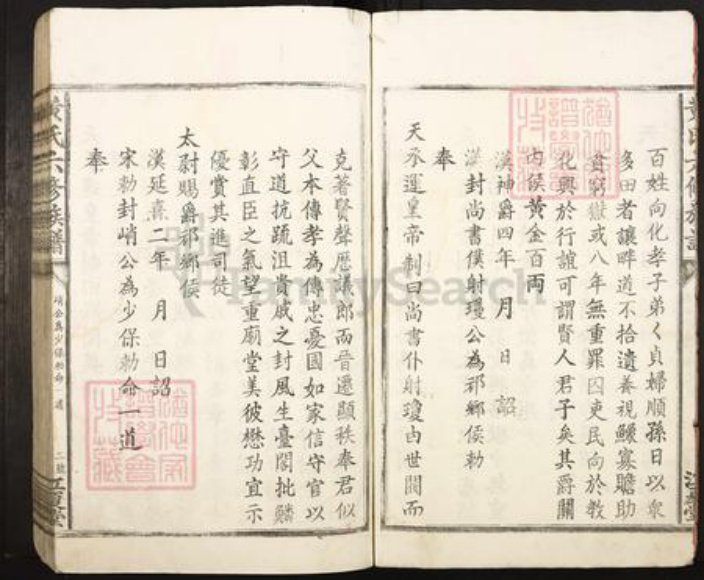 百姓向化孝子弟〻貞婦順孫日以衆
多田者讓畔道不拾遺養視鰥寡贍助
貧窮獄或八年無重罪囚吏民向於教
化興於行誼可謂賢人君子矣其爵關
內侯黃金百兩
漢神爵四年 月 日 詔
漢封尚書僕射瓊公為祁鄉侯勅
奉
天承運皇帝制曰尚書仆射瓊由世閥而
克著賢聲歷議郎而晉遷顯秩奉君似
父本傳孝為傳忠憂國如家信守官以
守道抗疏沮貴戚之封風生臺閣批鱗
彰直臣之氣望重廟堂美彼懋功宜示
優賞其進司徒
太尉賜爵祁鄉侯
漢延熹二年 月 日 詔
宋勅封峭公為少保勅命一道
奉
黃氏六修族譜
峭公為少保勅命 道
二號
江夏堂
黃氏六修族譜
江夏堂
FamilySearch